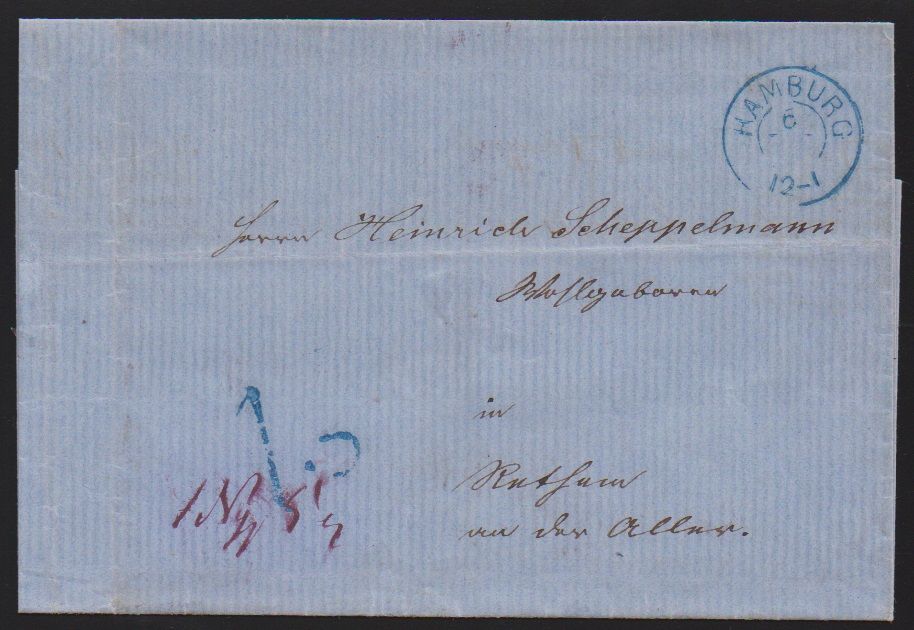 HAMBURG
6
12-1
Herrn Heinrich Scheppelmann
Wohlgeboren
in
Rethem
an der Aller.